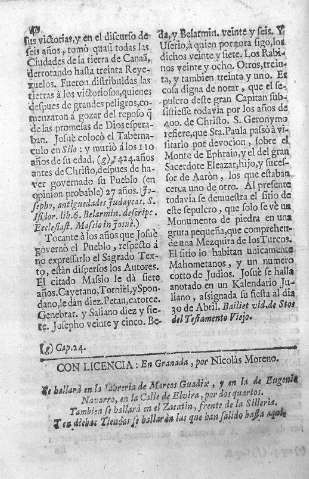 sus victorias, y en el discurso de
seis años, tomó quasi todas las
Ciudades de la tierra de Canaã,
derrotando hasta treinta Reye-
zuelos. Fueron distribuídas las
tierras à los victoriosos, quienes
despues de grandes peligros, co-
menzaron à gozar del reposo q̃
de las promesas de Dios espera-
ban. Josuè colocò el Taberna-
culo en Silo: y muriò à los 110
años de su edad, (g) 1424. años
antes de Christo, despues de ha-
ver governado su Pueblo (en
opinion probable) 27. años. Jo-
sepho, antiguedades Judaycas. S.
Isidor. lib. 6. Belarmin. de script.
Ecclesiast. Massio in Josuè.)
Tocante à los años que Josuè
governò el Pueblo, respecto à
no expressarlo el Sagrado Tex-
to, estàn dispersos los Autores.
El citado Massio le dà siete
años, Cayetano, Torniel, y Spon-
dano, le dàn diez. Petau, catorce.
Genebrar. y Saliano diez y sie-
te. Josepho veinte y cinco. Be-
da, y Belarmin. veinte y seis. Y
Userio, à quien por aora sigo, los
dichos veinte y siete. Los Rabi-
nos veinte y ocho. Otros, trein-
ta, y tambien treinta y uno. Es
cosa digna de notar, que el se-
pulcro deste gran Capitan sub-
sistiesse todavia por los años de
400. de Christo. S. Geronymo
refiere, que Sta. Paula passò à vi-
sitarlo por devocion, sobre el
Monte de Ephrain, y el del gran
Sacerdote Eleazar, hijo, y succes-
sor de Aaròn, los que estaban
cerca uno de otro. Al presente
todavia se demuestra el sitio de
este sepulcro, que solo se vè un
Monumento de piedra en una
gruta pequeña, que comprehen-
de una Mezquita de los Turcos.
El sitio lo habitan unicamente
Mahometanos, y un numero
cotto de Judios. Josuè se halla
anotado en un Kalendario Ju-
liano, assignada su fiesta al dia
30 de Abril. Bailiet vid. de Stos
del Testamento Viejo.
(g) Cap. 24.
CON LICENCIA: En Granada, por Nicolàs Moreno.
Se hallarà en la Libreria de Marcos Guadix, y en la de Eugenio
Navarro, en la Calle de Elvira, por dos quartos.
Tambien se hallarà en el Zacatin, frente de la Silleria.
Y en dichas Tiendas se hallaràn las que han salido hasta aqui.